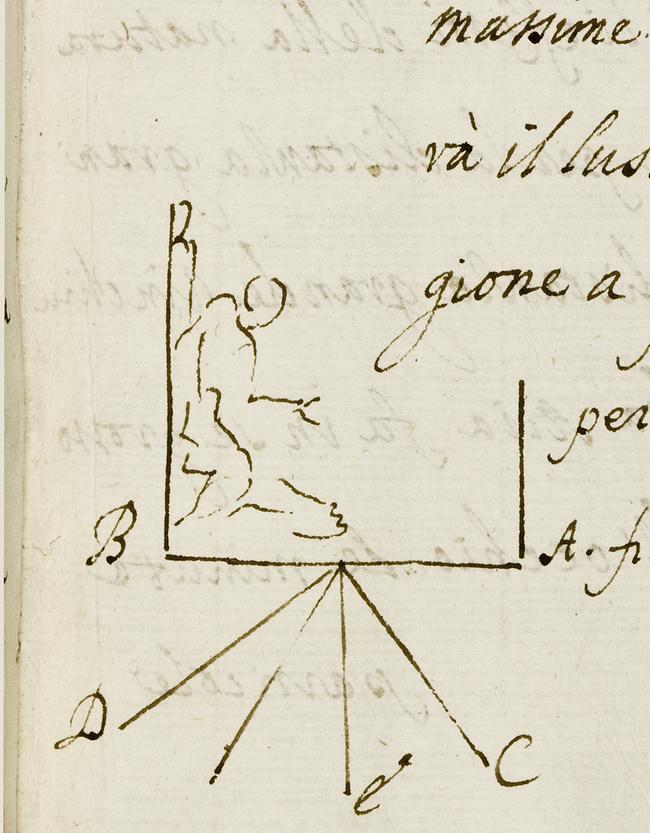 massime
và il lus
gione a
per
B
A. fi
D
e
C